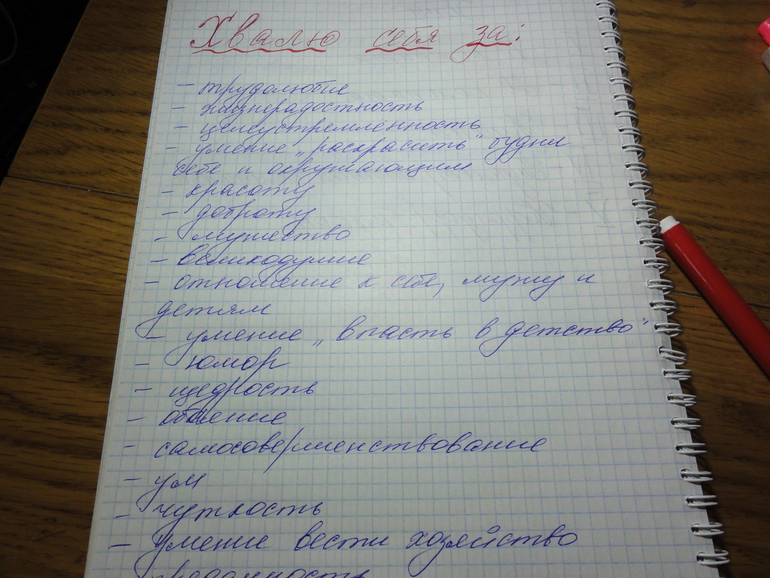 Хвалю себя за:
- трудолюбие
- жизнерадостность
- целеустремлённость
- умение „раскрасить" будни
себе и окружающим
- красоту
- доброту
- мужество
- великодушие
- отношение к себе, мужу и
детям
- умение „впасть в детство"
- юмор
- щедрость
- самосовершенствование
- ум
- чуткость
- умение вести хозяйство
преданность